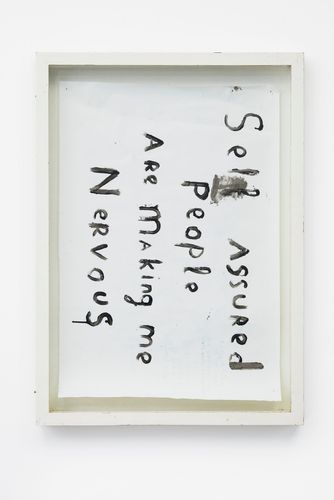 Self ASSURED
PEOPLE
ARE MAKING ME
NERVOUS